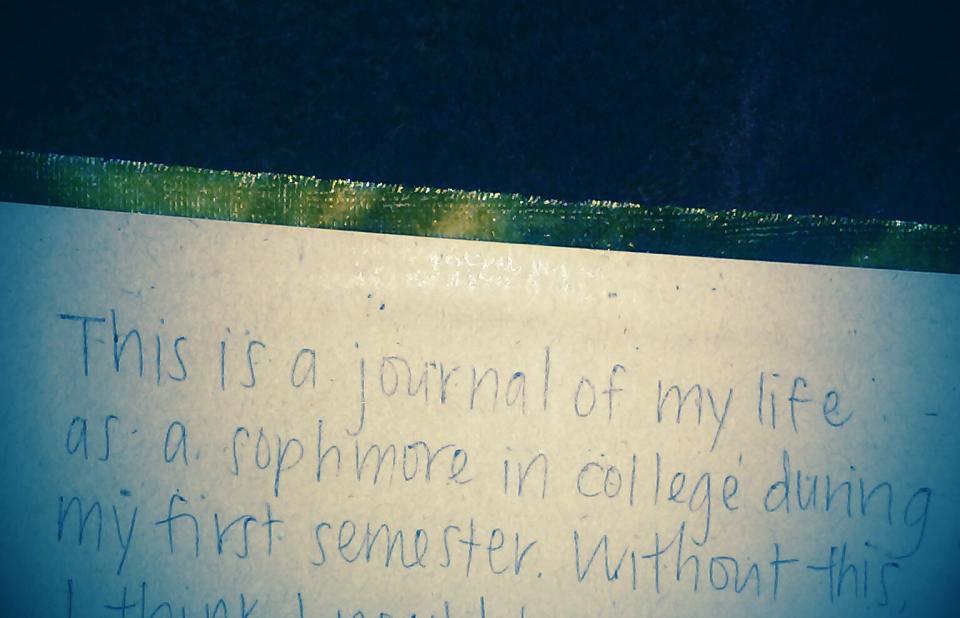 This is a journal of my life
as a sophmore in college during
my first semester. Without this,
I think I would